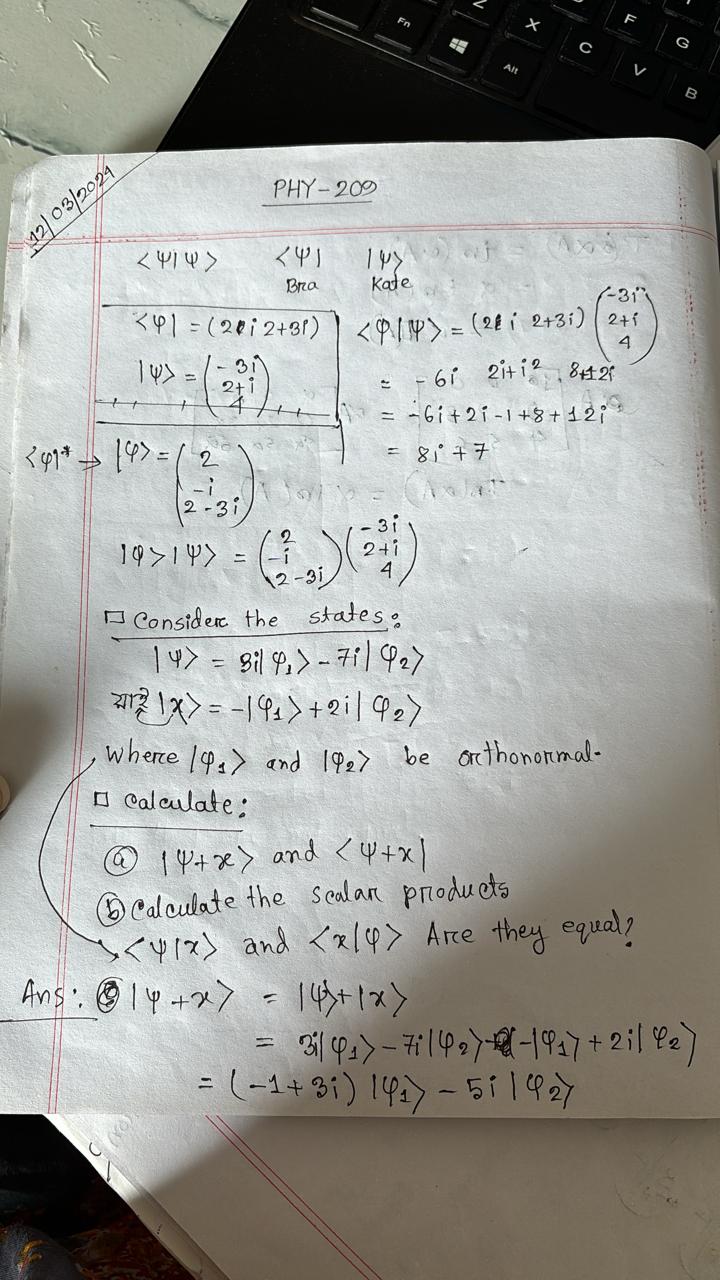 12/03/2024
PHY-209
<Ψ|Ψ> <Ψ| |Ψ>
Bra Kate
<φ| = (2 i 2+3i)
|Ψ> = (-3i 2+i 4)
<φ|Ψ> = (2 i 2+3i) (-3i 2+i 4)
= -6i 2i+i² 8+12i
= -6i+2i-1+8+12i
= 8i+7
<φ|* → |φ> = (2 -i 2-3i)
|φ>|Ψ> = (2 -i 2-3i) (-3i 2+i 4)
□ Consider the states:
|Ψ> = 3i|φ₁> - 7i|φ₂>
|x> = -|φ₁> + 2i|φ₂>
where |φ₁> and |φ₂> be orthonormal.
□ Calculate:
(a) |Ψ+x> and <Ψ+x|
(b) Calculate the scalar products
<Ψ|x> and <x|φ> Are they equal?
Ans: |Ψ+x> = |Ψ>+|x>
= 3i|φ₁> - 7i|φ₂> -|φ₁> + 2i|φ₂>
= (-1+3i) |φ₁> - 5i|φ₂>
Fn
Alt
Z
X
C
V
B
F
G